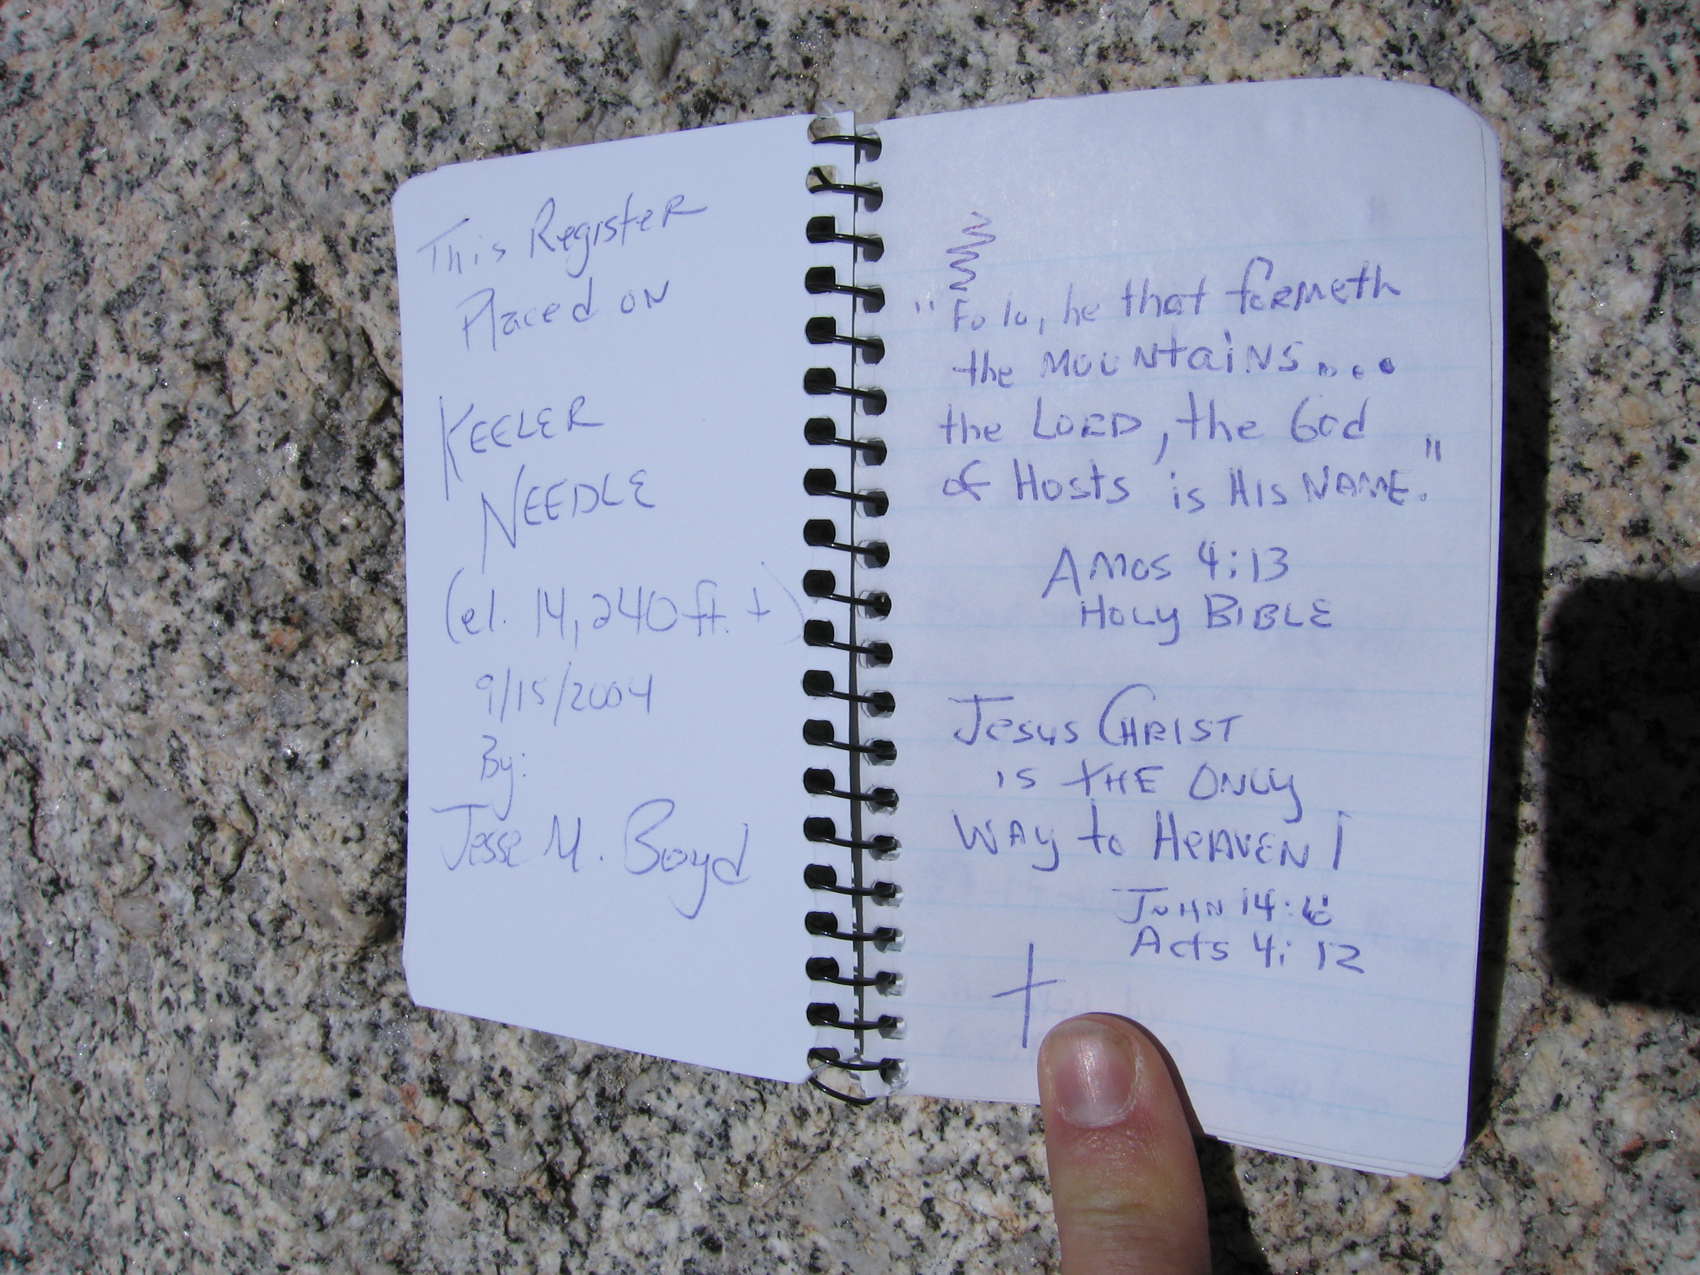 This Register
Placed on
KEELER
NEEDLE
(el. 14,240 ft. +)
9/15/2004
By:
Jesse M. Boyd
"Fo lo, he that formeth
the mountains...
the LORD, the God
of Hosts is His NAME."
Amos 4:13
HOLY BIBLE
Jesus CHRIST
is tHE ONLY
WAY to HEAVEN!
JOHN 14:6
Acts 4:12